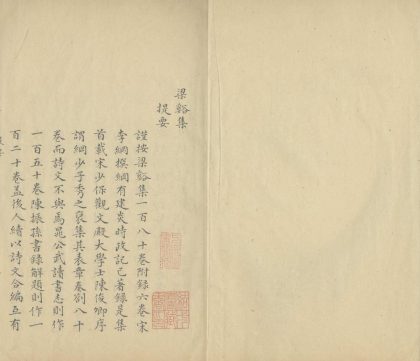 梁谿集
提要
謹按梁谿集一百八十卷附録六卷宋
李綱撰綱有建炎時政記已著録是集
首載宋少保觀文殿大學士陳俊卿序
謂綱少子秀之裒集其表章奏劄八十
卷而詩文不與焉晁公武讀書志則作
一百五十卷陳振孫書録解題則作一
百二十卷蓋後人續以詩文合編互有